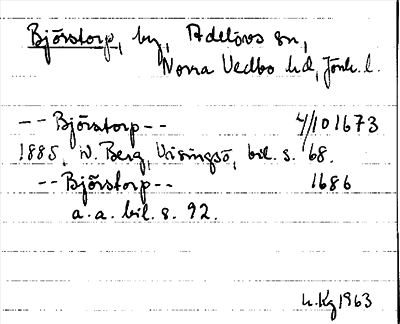 Björstorp, by, Adelövs sn,
Norra Vedbo hd, Jönk. l.
-- Björstorp -- 4/10 1673
1885, W. Berg, Visingsö, bil. s. 68.
-- Björstorp -- 1686
a. a. bil. s. 92.
1963